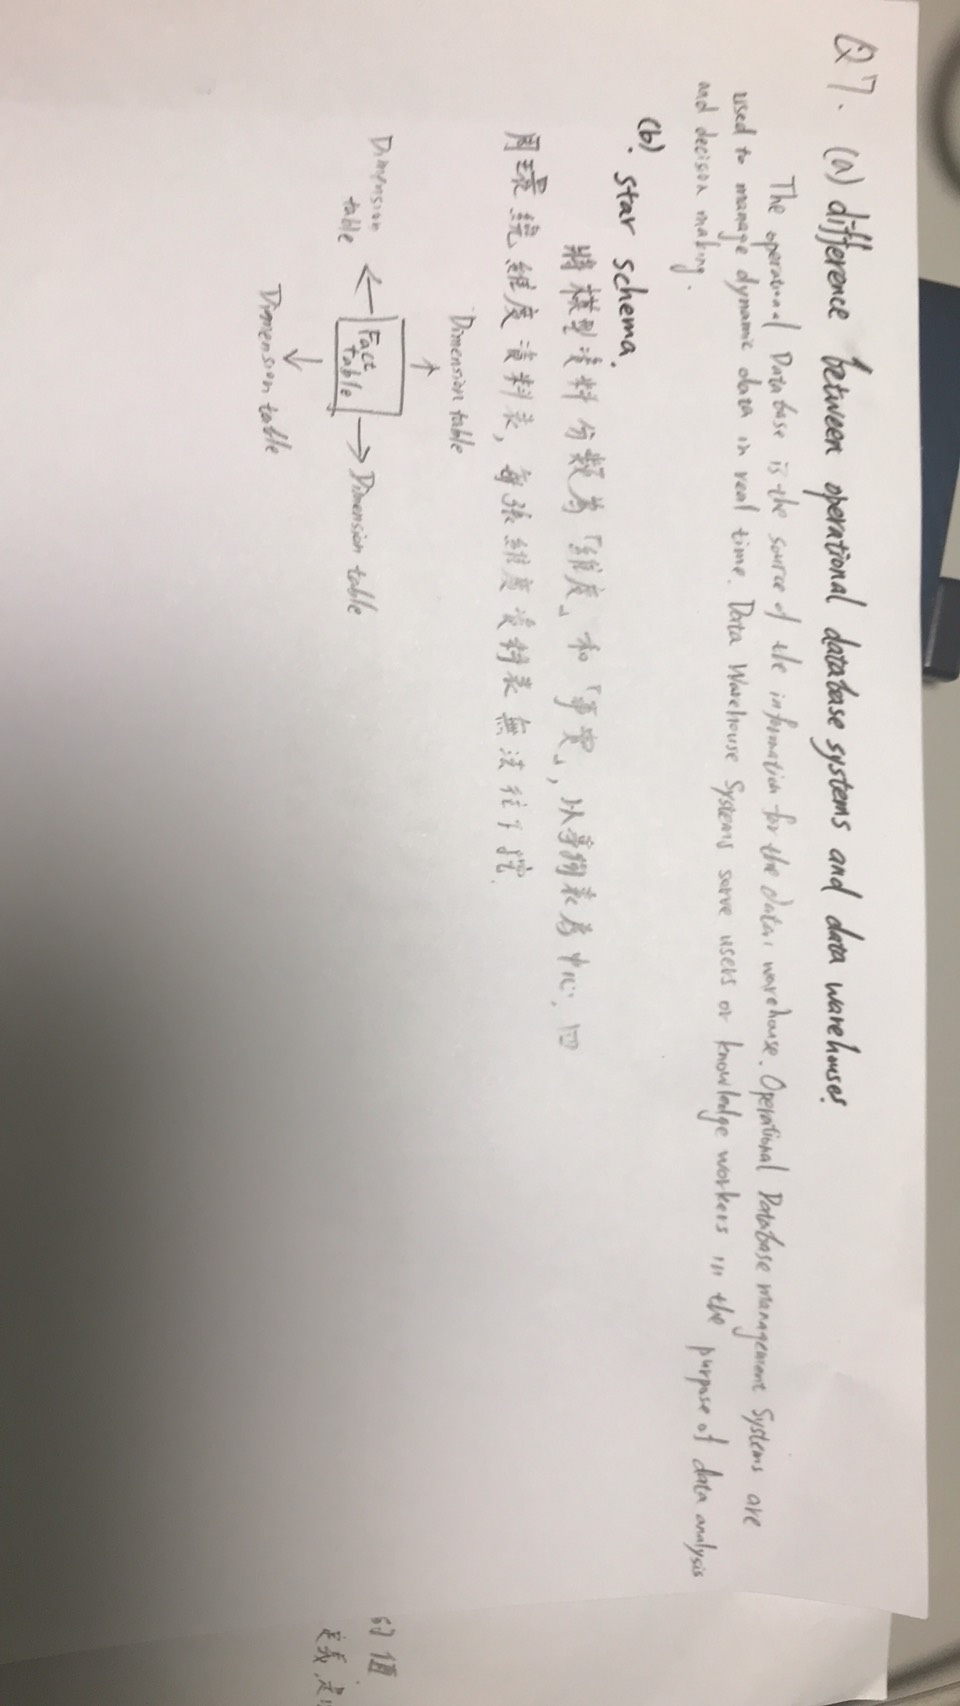 Q7. (a) difference between operational database systems and data warehouses.
The operational Database is the source of the information for the data warehouse. Operational Database management Systems are
used to manage dynamic data in real time. Data Warehouse Systems serve users or knowledge workers in the purpose of data analysis
and decision making.
(b). star schema.
將模型資料分類為「維度」和「事實」, 以事物表為中心, 四
周環繞維度資料表, 每張維度資料表無法往下挖.
Dimension table
Dimension
table
Fact
table
Dimension table
Dimension table
的值
定義,是